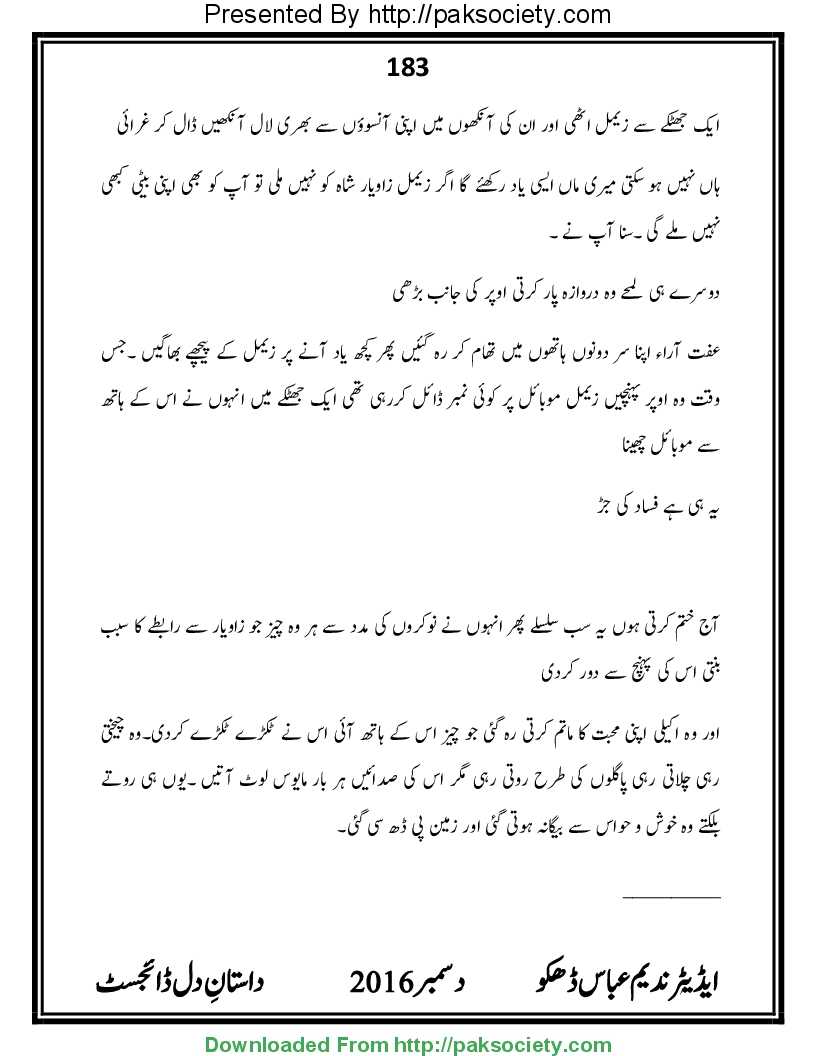 Presented By http://paksociety.com
183
ایک جھٹکے سے زیمل اٹھی اور ان کی آنکھوں میں اپنی آنسوؤں سے بھری لال آنکھیں ڈال کر غرائی
ہاں نہیں ہو سکتی میری ماں ایسی یاد رکھئے گا اگر زیمل زاویار شاہ کو نہیں ملی تو آپ کو بھی اپنی بیٹی کبھی
نہیں ملے گی ۔سنا آپ نے ۔
دوسرے ہی لمحے وہ دروازہ پار کرتی اوپر کی جانب بڑھی
عفت آراء اپنا سر دونوں ہاتھوں میں تھام کر رہ گئیں پھر کچھ یاد آنے پر زیمل کے پیچھے بھاگیں ۔جس
وقت وہ اوپر پہنچیں زیمل موبائل پر کوئی نمبر ڈائل کررہی تھی ایک جھٹکے میں انہوں نے اس کے ہاتھ
سے موبائل چھینا
یہ ہی ہے فساد کی جڑ
آج ختم کرتی ہوں یہ سب سلسلے پھر انہوں نے نوکروں کی مدد سے ہر وہ چیز جو زاویار سے رابطے کا سبب
بنتی اس کی پہنچ سے دور کردی
اور وہ اکیلی اپنی محبت کا ماتم کرتی رہ گئی جو چیز اس کے ہاتھ آئی اس نے ٹکڑے ٹکڑے کردی۔وہ چیختی
رہی چلاتی رہی پاگلوں کی طرح روتی رہی مگر اس کی صدائیں ہر بار مایوس لوٹ آتیں ۔یوں ہی روتے
بلکتے وہ خوش و حواس سے بیگانہ ہوتی گئی اور زمین پی ڈھ سی گئی۔
__________
ایڈیٹر ندیم عباس ڈھکو دسمبر 2016 داستانِ دل ڈائجسٹ
Downloaded From http://paksociety.com